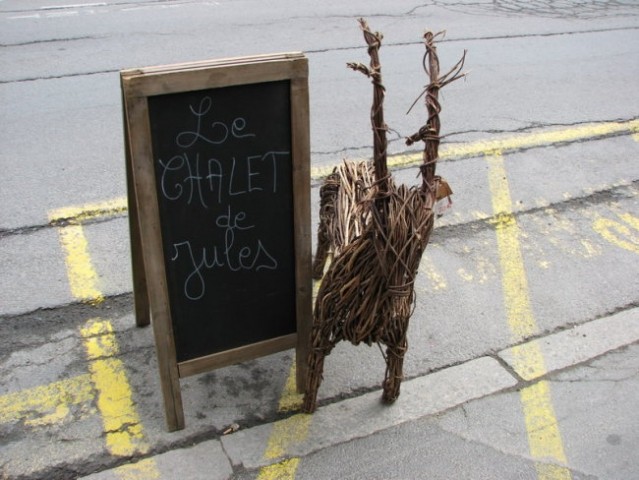 Le
CHALET
de
Jules